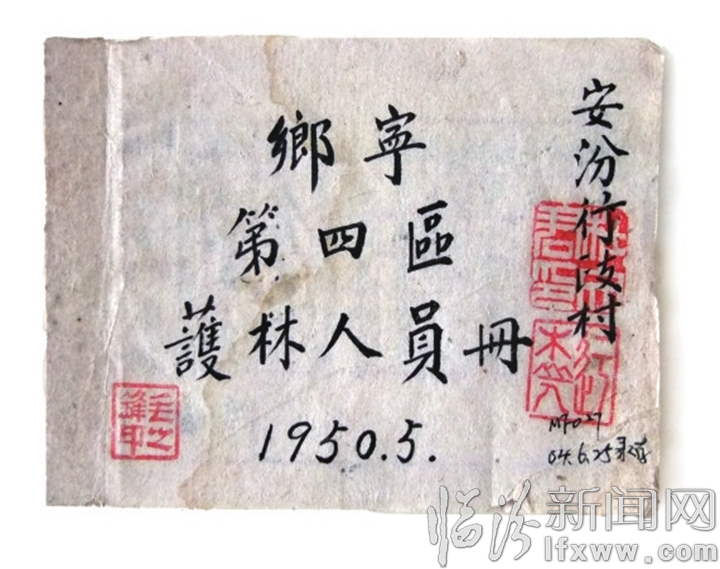 鄉寧
第四區
護林人員冊
1950.5.
安汾行政村
M7027
04.6.25
临汾新闻网
lfxww.com